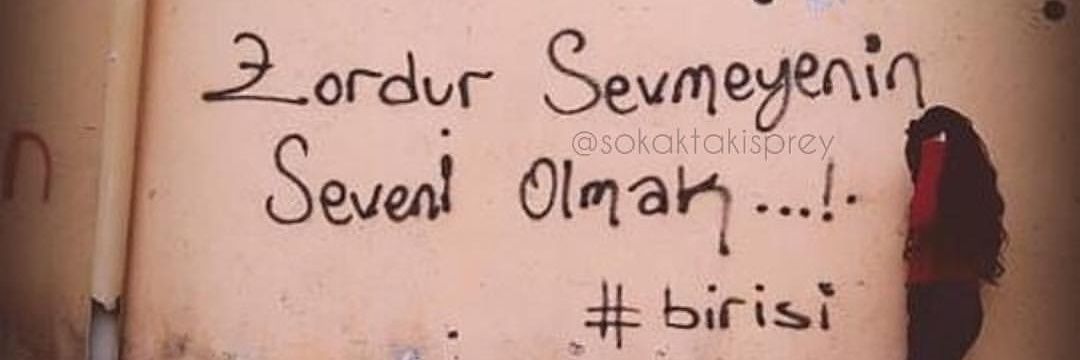 Zordur Sevmeyenin
@sokaktakisprey
Seveni Olmak...!.
#birisi
n